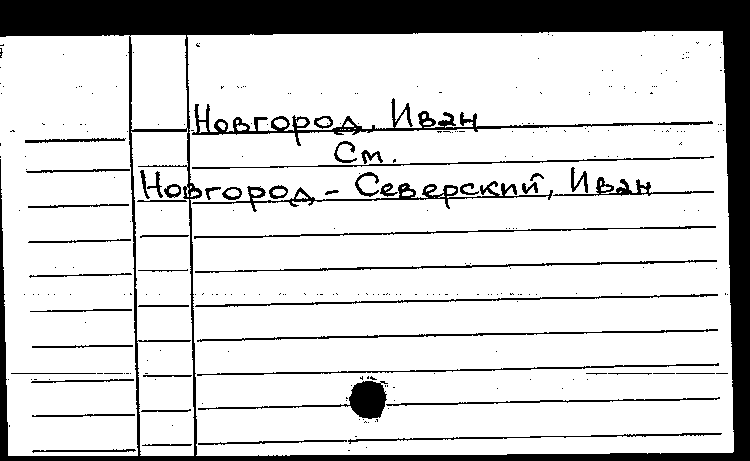 Новгород, Иван
См.
Новгород - Северский, Иван